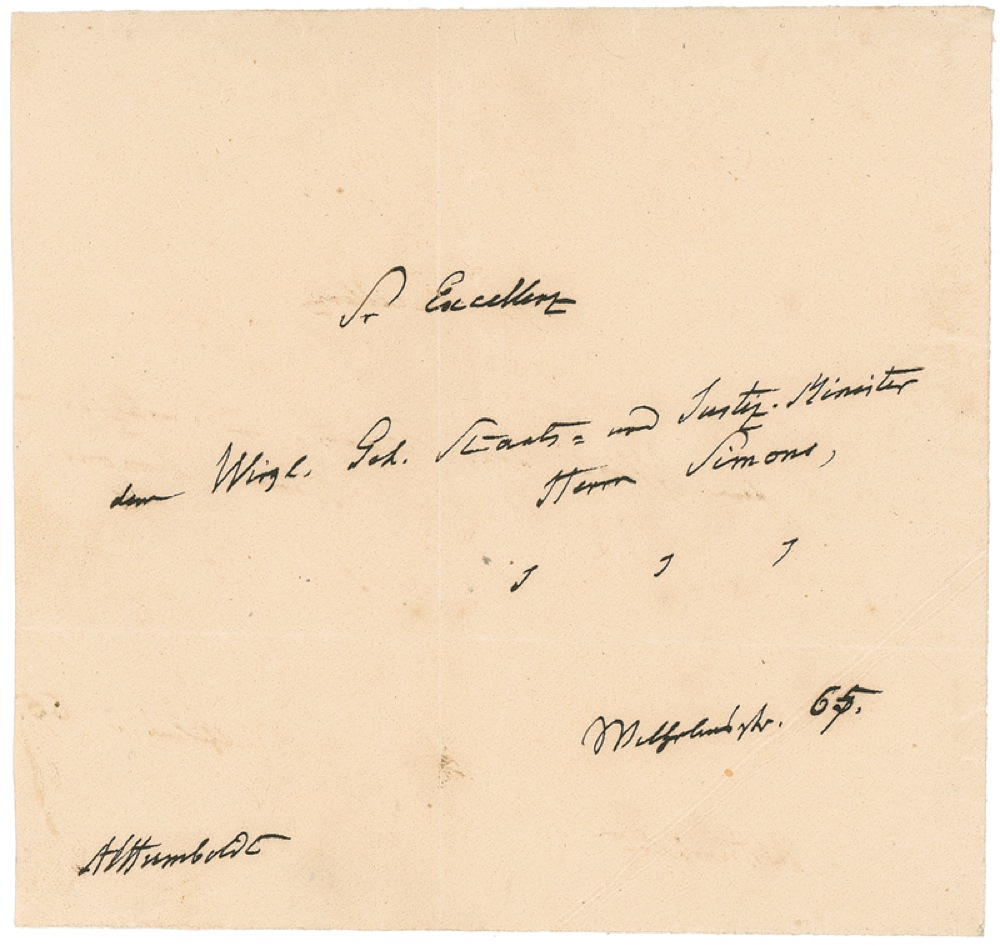 Sr Excellenz
dem Wirkl. Geh. Staats= und Justiz-Minister
Herrn Simons,
Wilhelmsstr. 65.
AvHumboldt